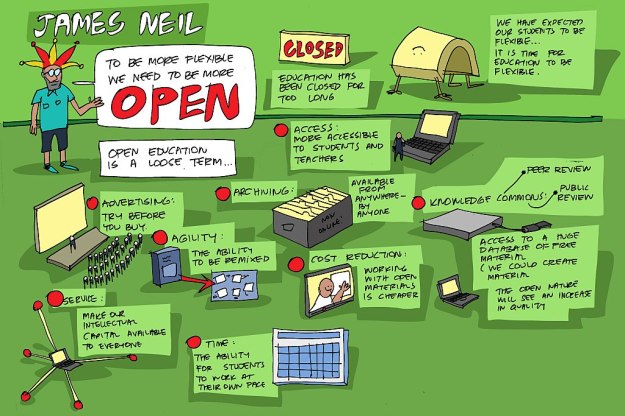 JAMES NEIL
TO BE MORE FLEXIBLE
WE NEED TO BE MORE
OPEN
OPEN EDUCATION
IS A LOOSE TERM...
CLOSED
EDUCATION HAS
BEEN CLOSED FOR
TOO LONG
WE HAVE EXPECTED
OUR STUDENTS TO BE
FLEXIBLE...
IT IS TIME FOR
EDUCATION TO BE
FLEXIBLE.
ACCESS:
MORE ACCESSIBLE
TO STUDENTS AND
TEACHERS
ADVERTISING:
TRY BEFORE
YOU BUY.
ARCHIVING:
AVAILABLE
FROM
ANYWHERE...
BY
ANYONE
NOW
ONLINE!
KNOWLEDGE COMMONS:
PEER REVIEW
PUBLIC
REVIEW
ACCESS TO A HUGE
DATABASE OF FREE
MATERIAL
(WE COULD CREATE
MATERIAL
THE OPEN NATURE
WILL SEE AN INCREASE
IN QUALITY
AGILITY:
THE ABILITY
TO BE REMIXED
COST REDUCTION:
WORKING
WITH OPEN
MATERIALS
IS CHEAPER
SERVICE:
MAKE OUR
INTELLECTUAL
CAPITAL AVAILABLE
TO EVERYONE
TIME:
THE ABILITY
FOR STUDENTS
TO WORK AT
THEIR OWN PACE